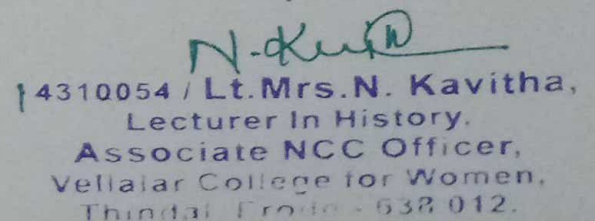 N. Kavi
14310054 / Lt.Mrs.N. Kavitha,
Lecturer In History.
Associate NCC Officer,
Vellalar College for Women,
Thindal Erode - 638 012.